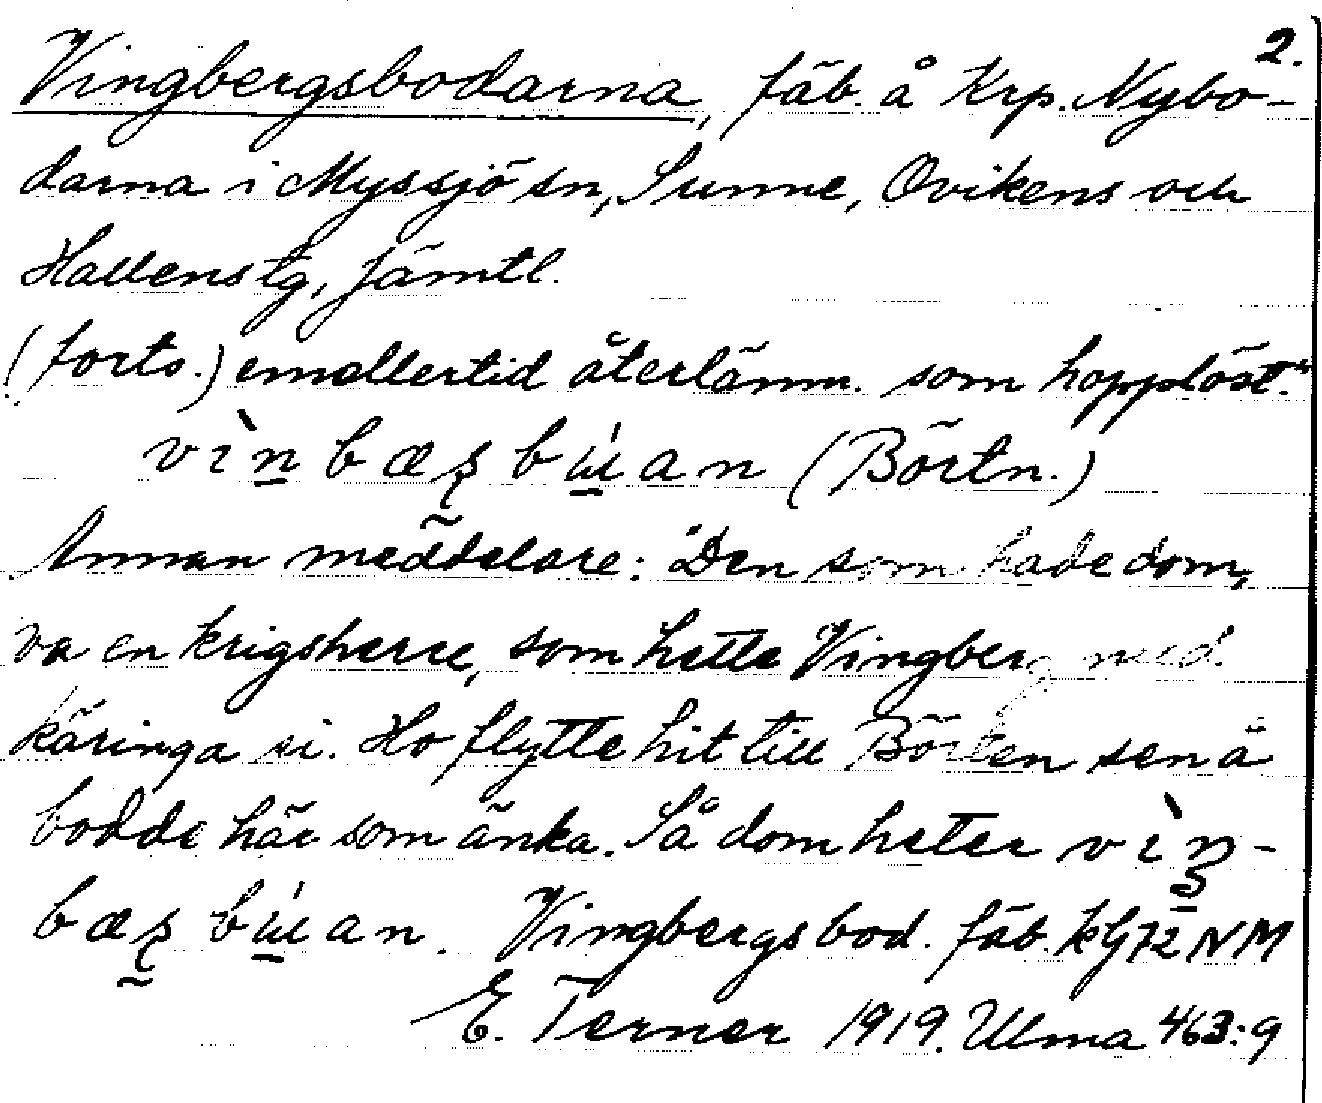 2.
Vingbergsbodarna, fäb. å Krp. Nybo-
darna i Myssjö sn, Sunne, Ovikens och
Hallens tg, Jämtl.
(forts.) emellertid återlämn. som hopplöst."
vìn bæʂ bú̱an (Börtn.)
Annan meddelare: "Den som hade dom,
va en krigsherre, som hette Vingberg med
käringa si. Ho flytte hit till Börten sen å
bodde här som änka. Så dom heter vìŋ-
bæʂ bú̱an. Vingbergsbod. fäb. kG72NM
E. Terner 1919. Ulma 463:9